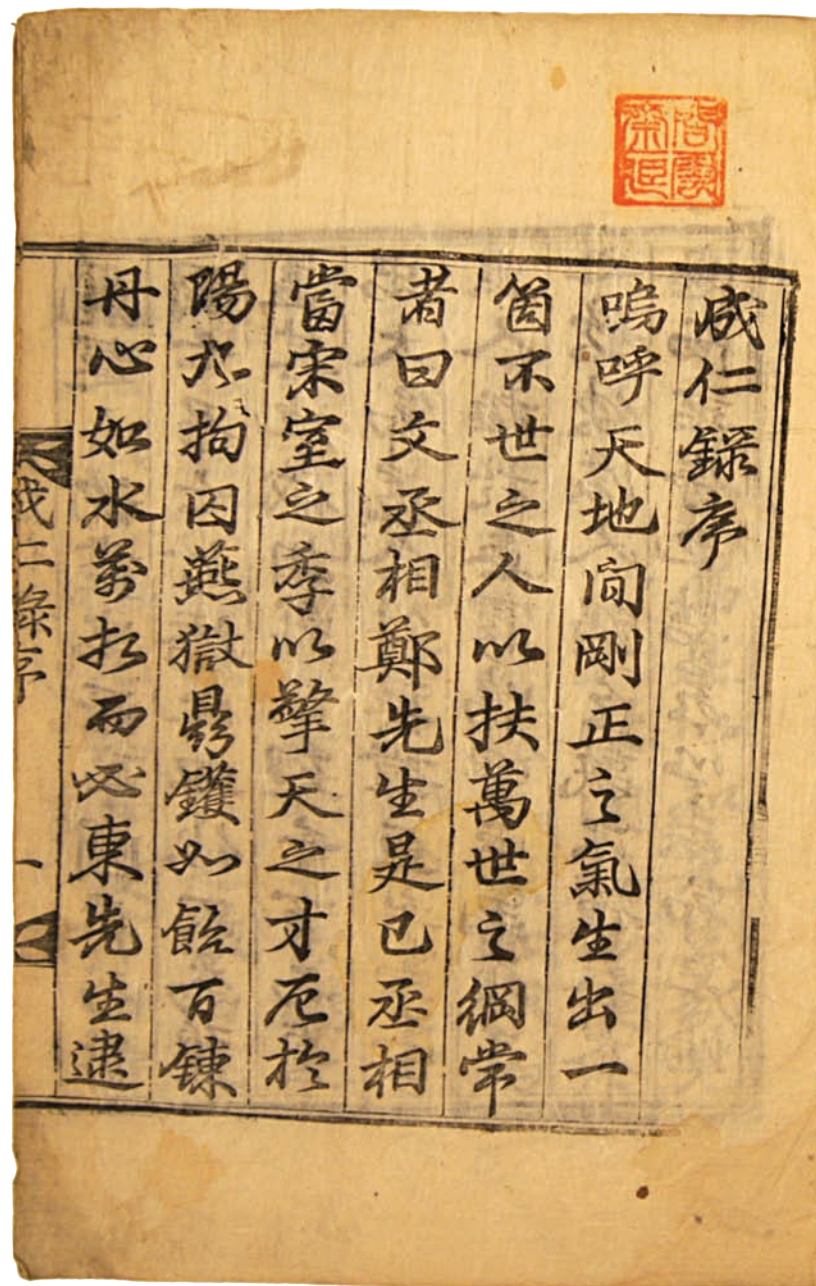 成仁錄序
嗚呼天地间剛正之氣生出一
箇不世之人以扶萬世之綱常
者曰文丞相鄭先生是已丞相
當宋室之季以擎天之才厄於
陽九拘囚燕獄鼎鑊如飴百鍊
丹心如水萬折而必東先生逮
成仁錄序
一